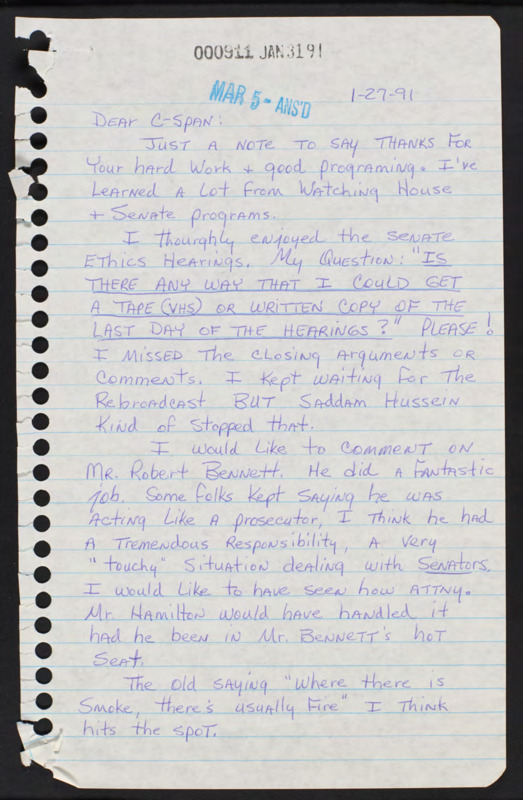 000911 JAN3191
MAR 5 - ANS'D
1-27-91
Dear C-Span:
Just a note to say thanks for
your hard work + good programing. I've
learned a lot from watching House
+ Senate programs.
I thourghly enjoyed the Senate
Ethics Hearings. My Question: "IS
THERE ANY WAY THAT I COULD GET
A TAPE (VHS) OR WRITTEN COPY OF THE
LAST DAY OF THE HEARINGS?" PLEASE!
I missed the closing arguments or
comments. I kept waiting for the
Rebroadcast BUT Saddam Hussein
kind of stopped that.
I would like to comment on
Mr. Robert Bennett. He did a fantastic
job. Some folks kept saying he was
acting like a prosecutor, I think he had
a tremendous responsibility, a very
"touchy" situation dealing with Senators.
I would like to have seen how Attny.
Mr. Hamilton would have handled it
had he been in Mr. Bennett's hot
seat.
The old saying "Where there is
smoke, there's usually fire" I think
hits the spot.